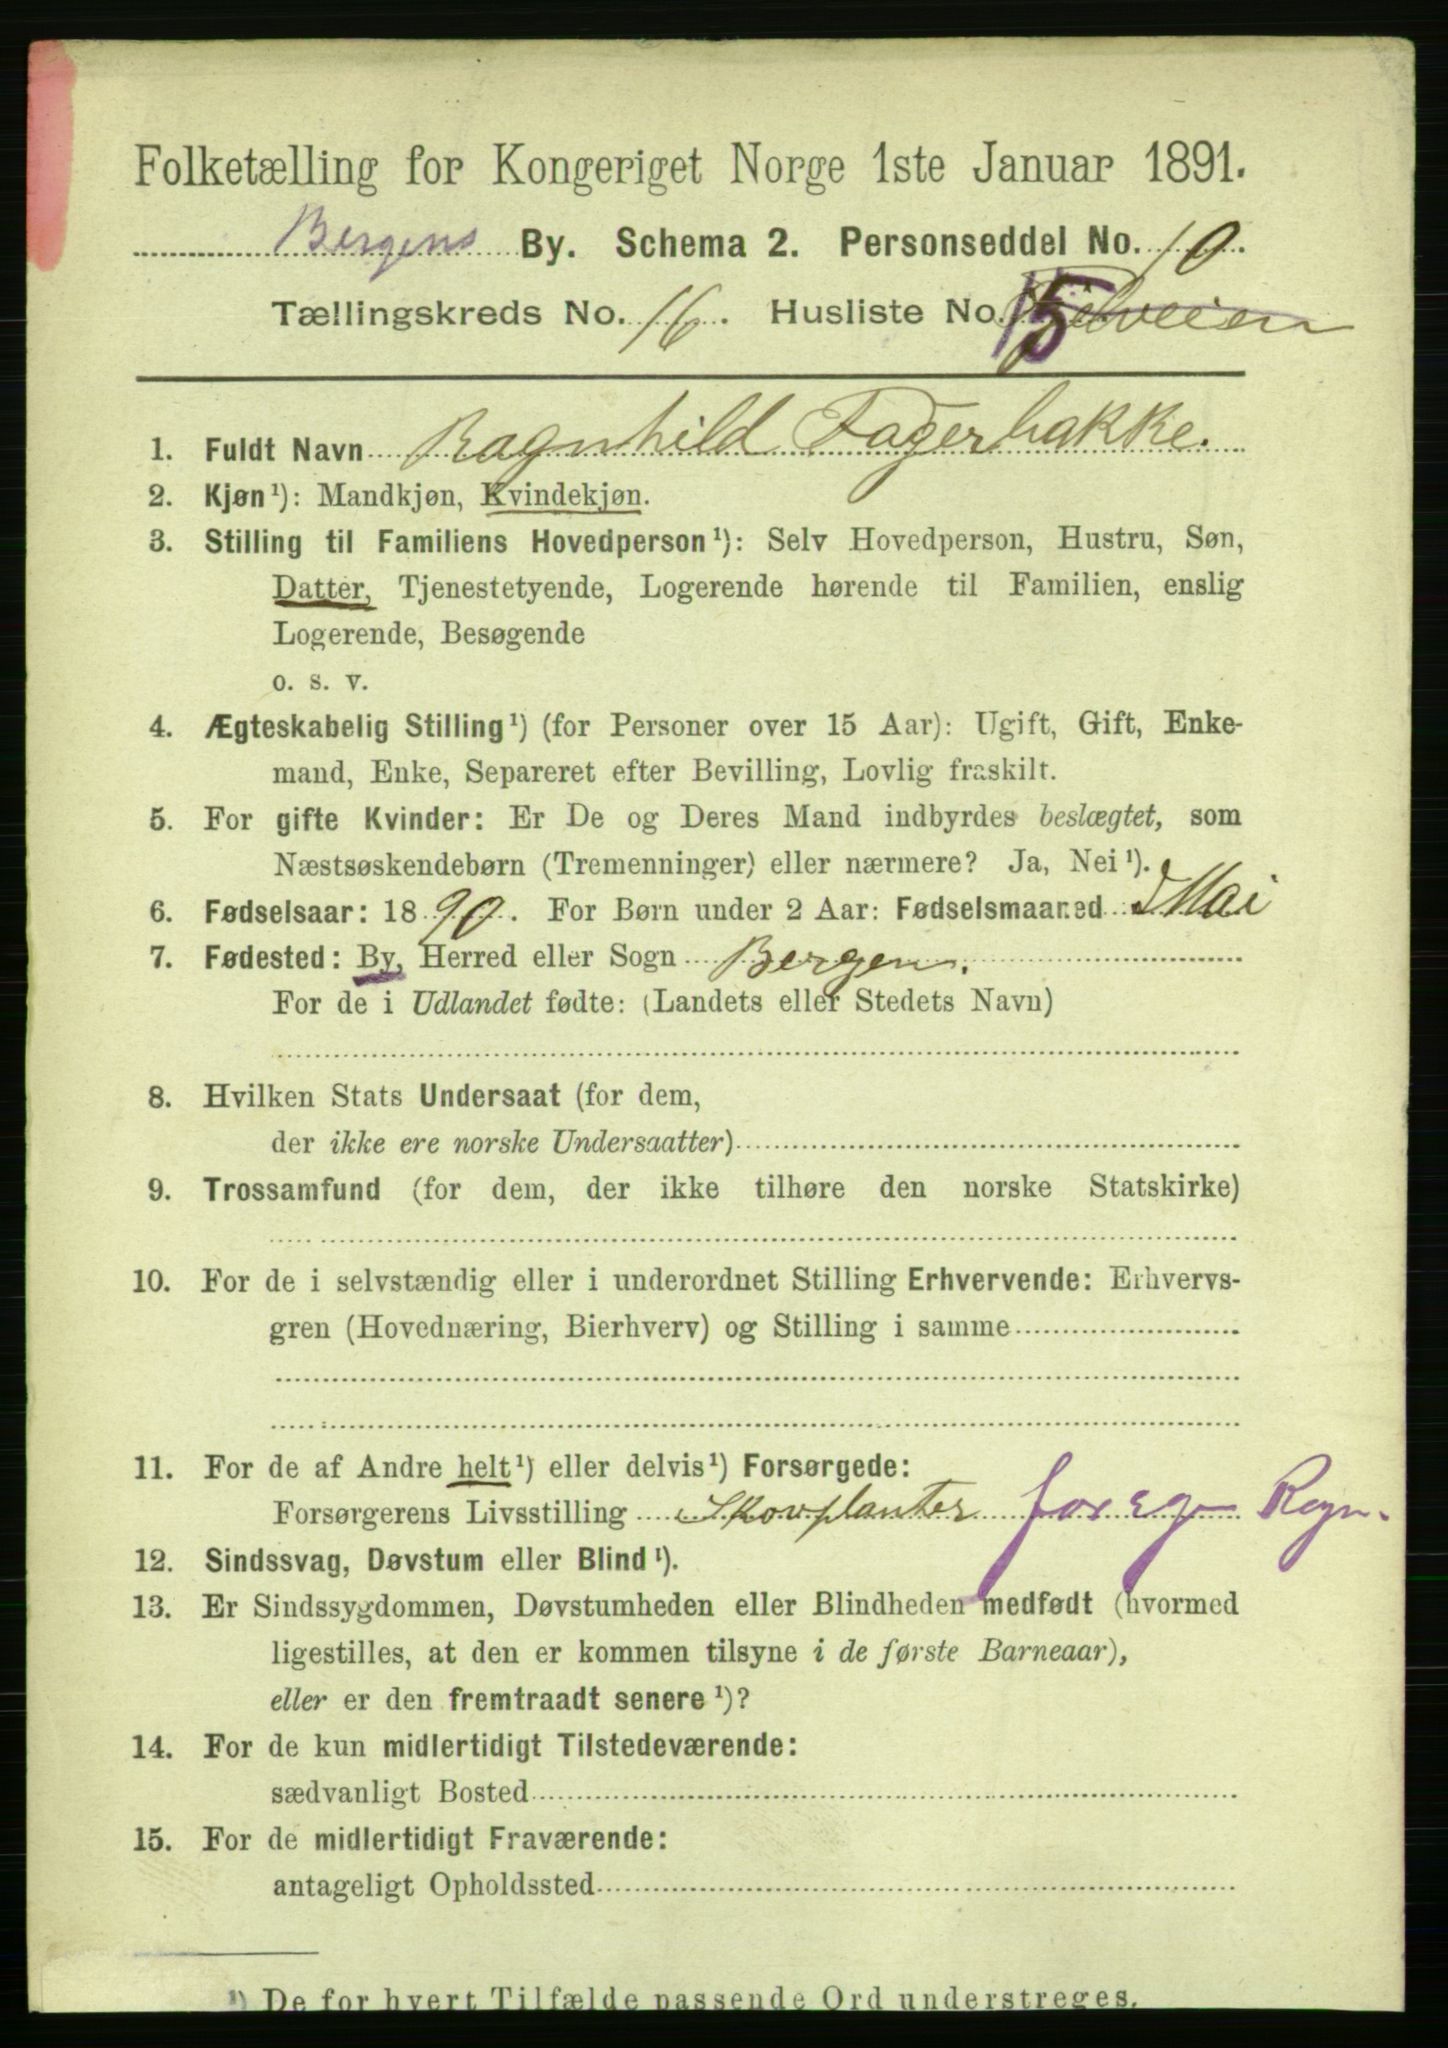 Folketælling for Kongeriget Norge 1ste Januar 1891.
Bergens By. Schema 2. Personseddel No. 10.
Tællingskreds No. 16. Husliste No. 15
1. Fuldt Navn Ragnhild Fagerbakke.
2. Kjøn ¹): Mandkjøn, Kvindekjøn.
3. Stilling til Familiens Hovedperson ¹): Selv Hovedperson, Hustru, Søn,
Datter, Tjenestetyende, Logerende hørende til Familien, enslig
Logerende, Besøgende
o. s. v.
4. Ægteskabelig Stilling ¹) (for Personer over 15 Aar): Ugift, Gift, Enke-
mand, Enke, Separeret efter Bevilling, Lovlig fraskilt.
5. For gifte Kvinder: Er De og Deres Mand indbyrdes beslægtet, som
Næstsøskendebørn (Tremenninger) eller nærmere? Ja, Nei ¹).
6. Fødselsaar: 1890. For Børn under 2 Aar: Fødselsmaaned Mai
7. Fødested: By, Herred eller Sogn Bergen.
For de i Udlandet fødte: (Landets eller Stedets Navn)
8. Hvilken Stats Undersaat (for dem,
der ikke ere norske Undersaatter)
9. Trossamfund (for dem, der ikke tilhøre den norske Statskirke)
10. For de i selvstændig eller i underordnet Stilling Erhvervende: Erhvervs-
gren (Hovednæring, Bierhverv) og Stilling i samme
11. For de af Andre helt ¹) eller delvis ¹) Forsørgede:
Forsørgerens Livsstilling Skovplanter for eg Regn.
12. Sindssvag, Døvstum eller Blind ¹).
13. Er Sindssygdommen, Døvstumheden eller Blindheden medfødt (hvormed
ligestilles, at den er kommen tilsyne i de første Barneaar),
eller er den fremtraadt senere ¹)?
14. For de kun midlertidigt Tilstedeværende:
sædvanligt Bosted
15. For de midlertidigt Fraværende:
antageligt Opholdssted
¹) De for hvert Tilfælde passende Ord understreges.